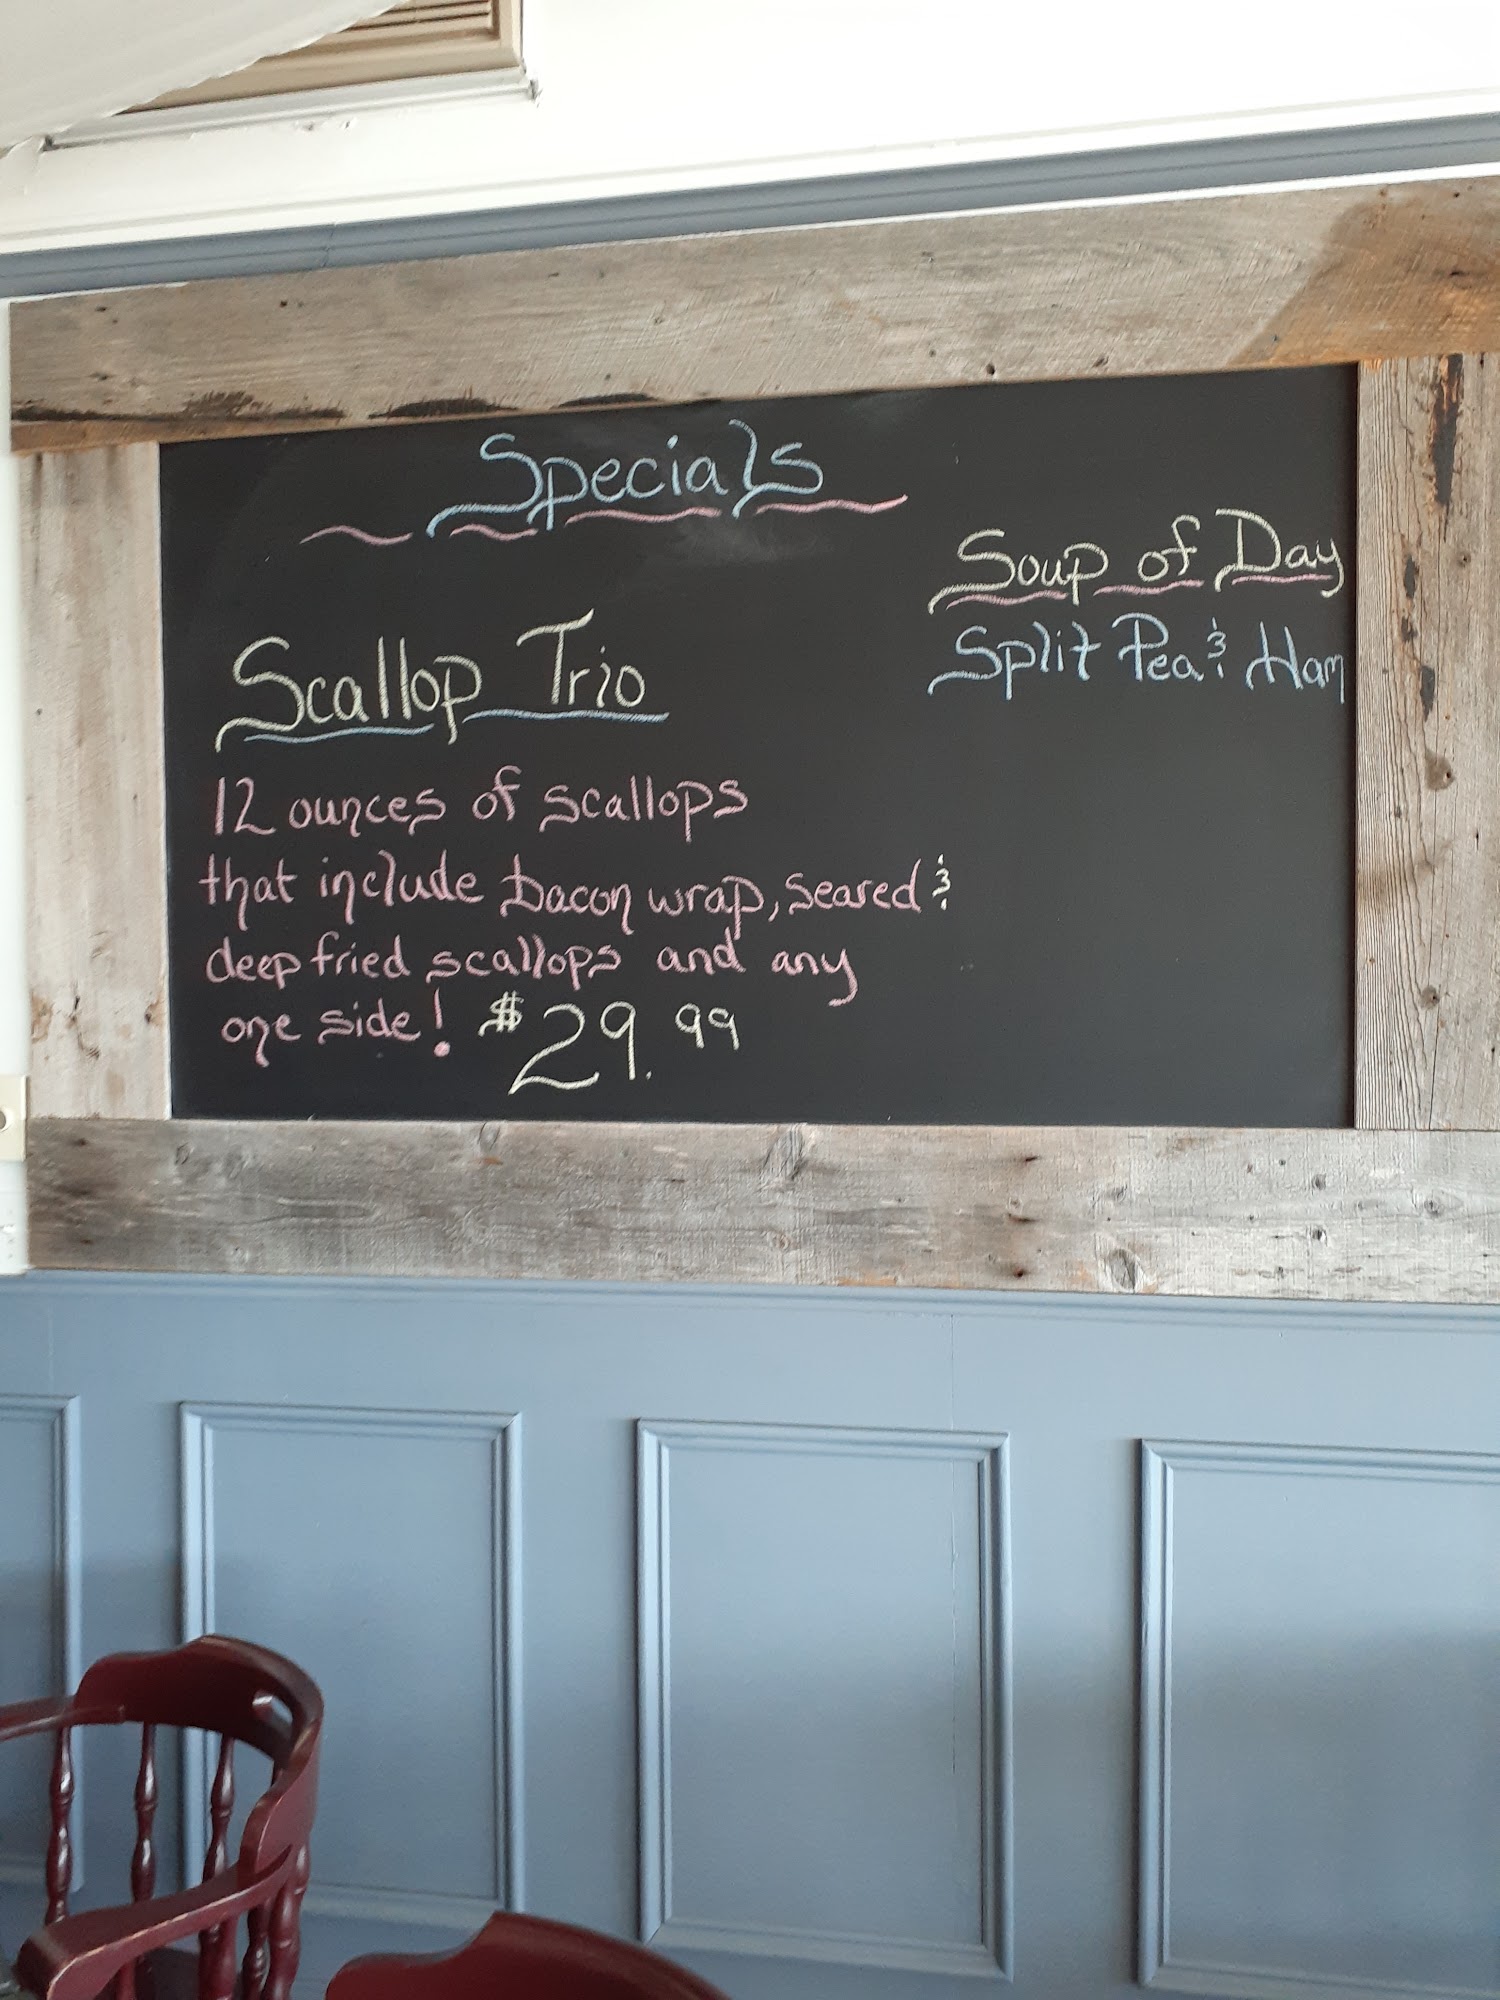 Specials
Scallop Trio
12 ounces of scallops
that include bacon wrap, seared &
deep fried scallops and any
one side! $29.99
Soup of Day
Split Pea & Ham